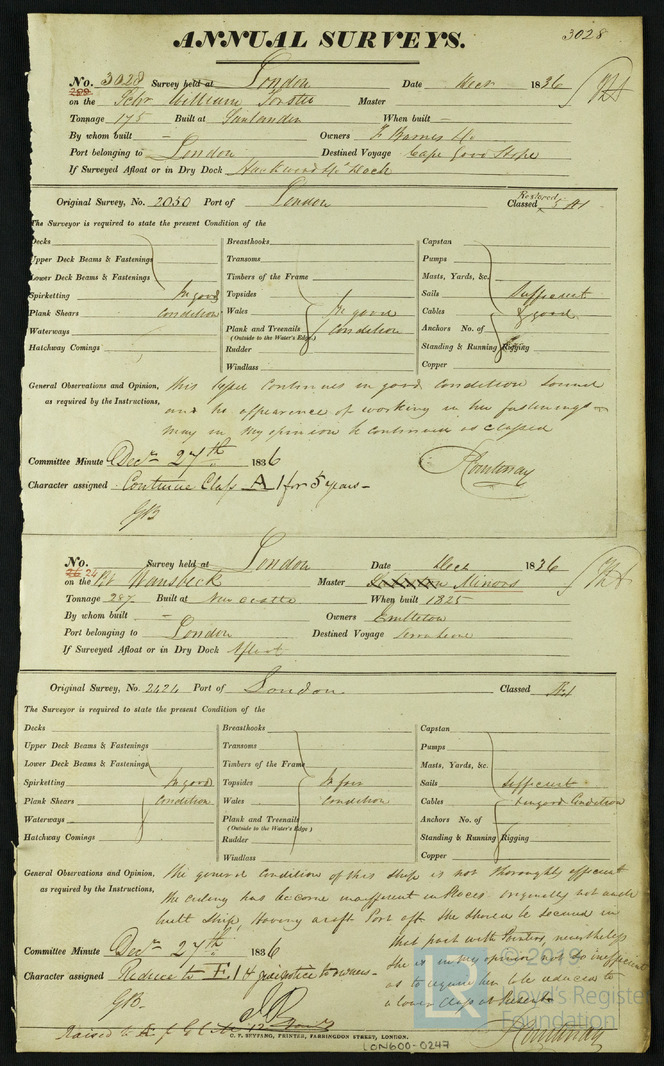 3028
ANNUAL SURVEYS.
No. 3028 Survey held at London Date Decr 1836
on the Schr William Master
Tonnage 175 Built at Sunderland When built -
By whom built - Owners F Barnes & Co
Port belonging to London Destined Voyage Cape Good Hope
If Surveyed Afloat or in Dry Dock Dock
Original Survey, No. 2050 Port of London Classed Restored 5 A1
The Surveyor is required to state the present Condition of the
Decks
Upper Deck Beams & Fastenings
Lower Deck Beams & Fastenings
Spirketting In good
Plank Shears Condition
Waterways
Hatchway Comings
Breasthooks
Transoms
Timbers of the Frame
Topsides
Wales In good
Plank and Treenails Condition
(Outside to the Water's Edge)
Rudder
Windlass
Capstan
Pumps
Masts, Yards, &c.
Sails Sufficient
Cables & good
Anchors No. of
Standing & Running Rigging
Copper
General Observations and Opinion, this vessel continues in good condition sound
as required by the Instructions, and no appearance of working in her fastenings
may in my opinion be continued as classed
Committee Minute Decr 27th 1836
Character assigned Continue Class A 1 for 5 years -
GB
Courtenay
No. 24 Survey held at London Date Decr 1836
on the Wansbeck Master Minors
Tonnage 287 Built at Newcastle When built 1825
By whom built - Owners Embleton
Port belonging to London Destined Voyage
If Surveyed Afloat or in Dry Dock Afloat
Original Survey, No. 2424 Port of London Classed Æ1
The Surveyor is required to state the present Condition of the
Decks
Upper Deck Beams & Fastenings
Lower Deck Beams & Fastenings
Spirketting In good
Plank Shears Condition
Waterways
Hatchway Comings
Breasthooks
Transoms
Timbers of the Frame
Topsides In fair
Wales Condition
Plank and Treenails
(Outside to the Water's Edge)
Rudder
Windlass
Capstan
Pumps
Masts, Yards, &c.
Sails Sufficient
Cables In good Condition
Anchors No. of
Standing & Running Rigging
Copper
General Observations and Opinion, the general Condition of this Ship is not thoroughly efficient
as required by the Instructions, the ceiling has become inefficient in places originally not a well
built Ship, Having a raft Port aft she should be secured in
that part with Pointers, nevertheless
she is in my opinion not so inefficient
as to require her to be reduced to
a lower class at present
Committee Minute Decr 27th 1836
Character assigned Reduce to E. 1 & give notice to owners -
GB.
Courtenay
Raised to
C. F. SEYFANG, PRINTER, FARRINGDON STREET, LONDON.
LON600-0247
LR
© 2019
Lloyd's Register
Foundation